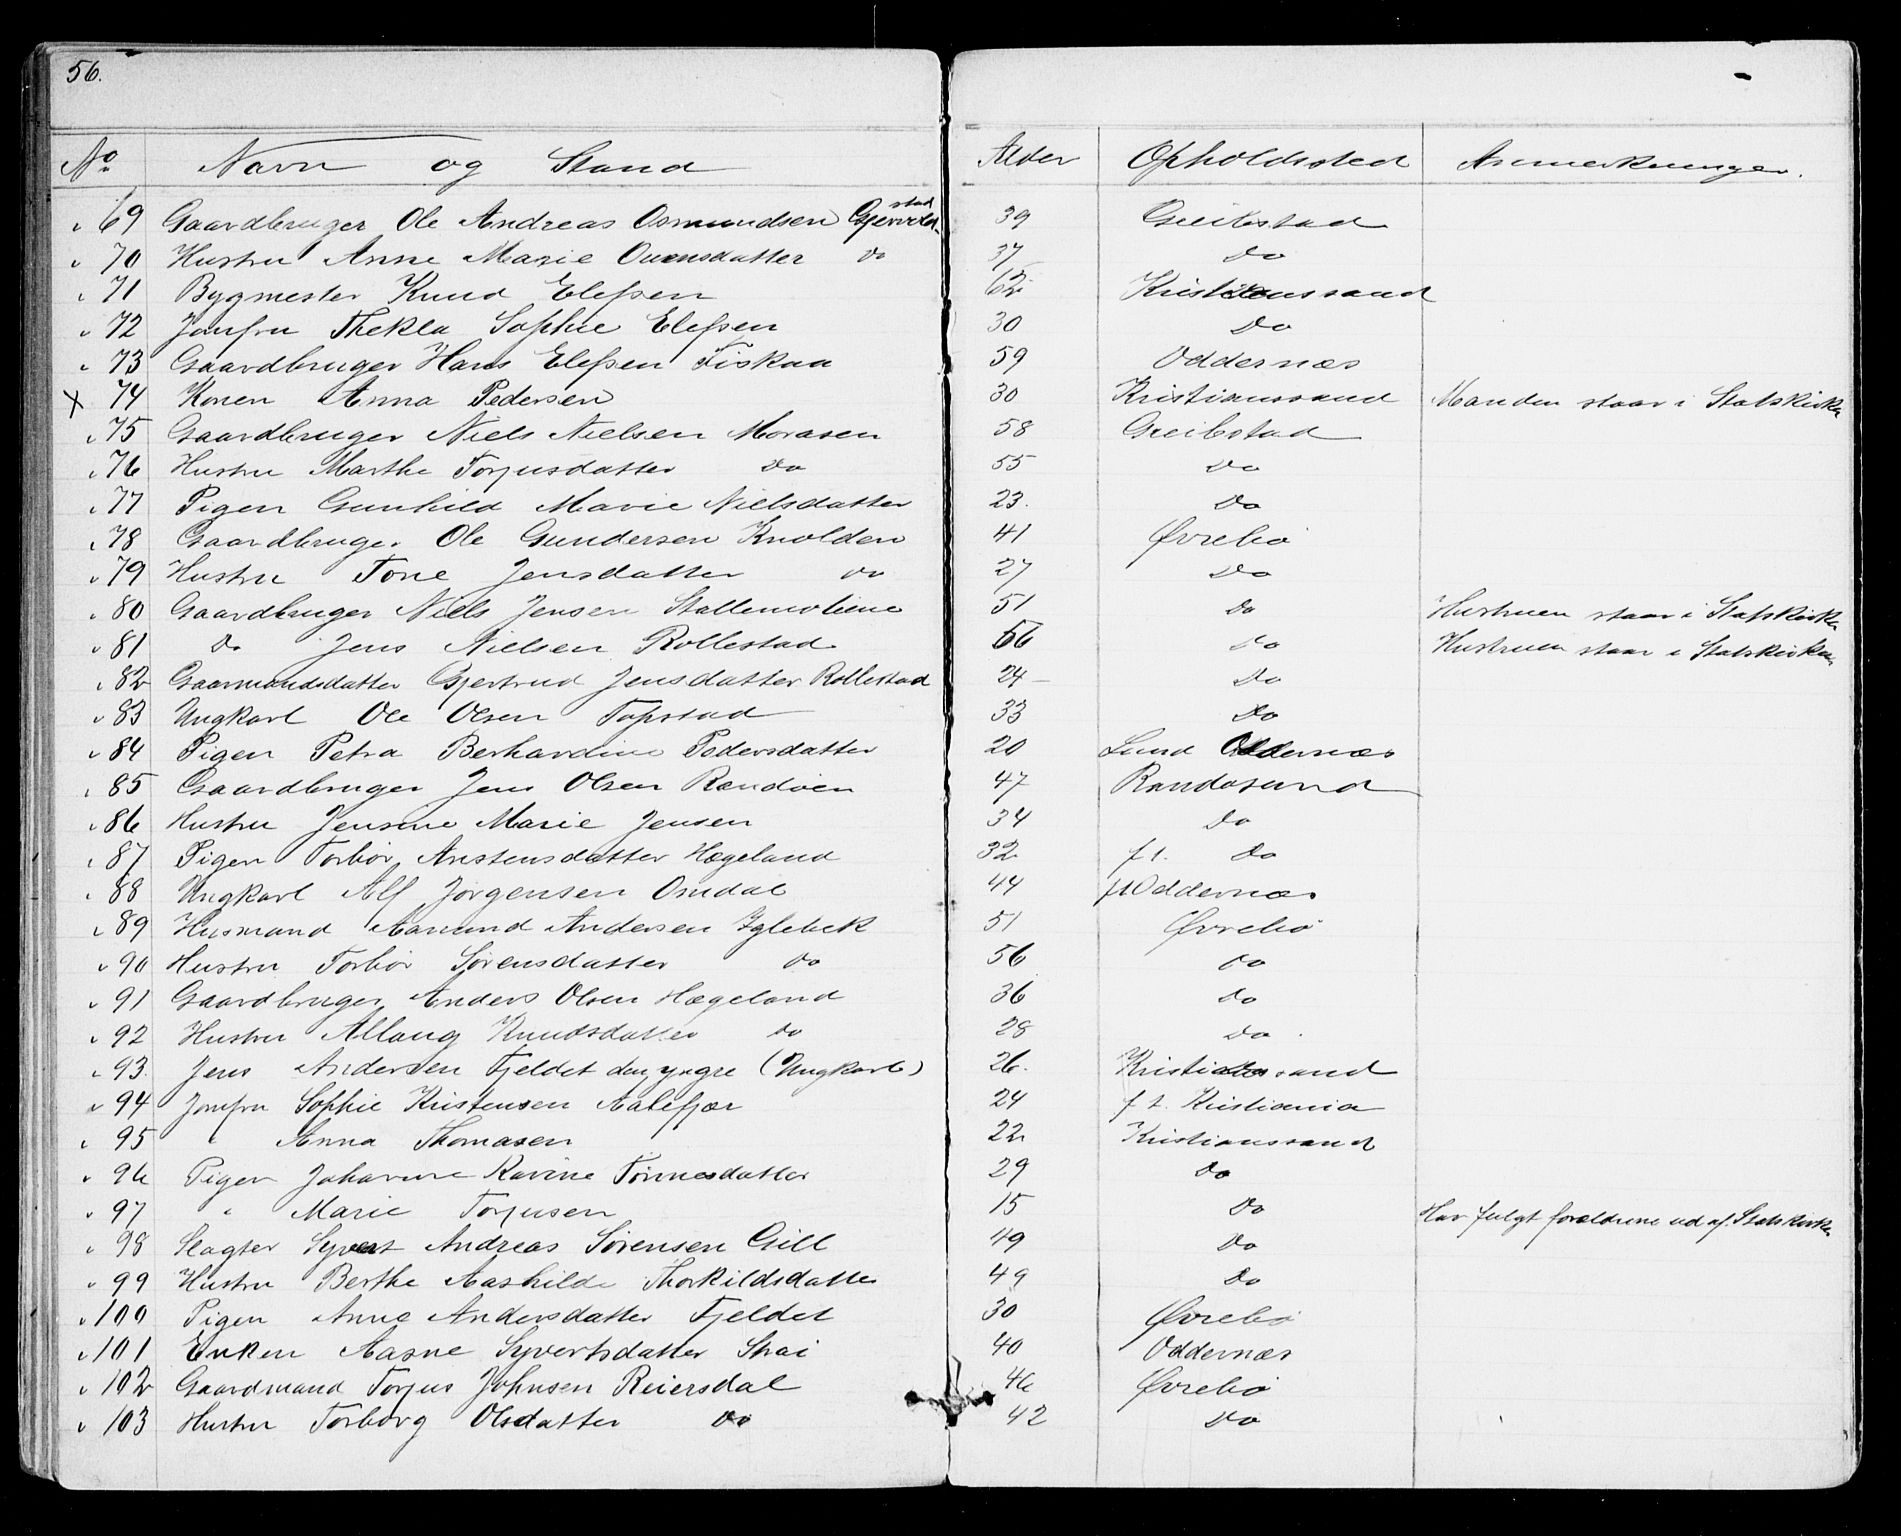 56.
No Navn og Stand Alder Opholdssted Anmerkninger.
69 Gaardbruger Ole Andreas Osmundsen Gjervoldstad 39 Greibstad
70 Hustru Anne Marie Ounensdatter do 37 Do
71 Bygmester Knud Elefsen 62 Kristianssand
72 Jomfru Thekla Sophie Elefsen 30 Do
73 Gaardbruger Hans Elefsen Fiskaa 59 Oddernæs
x 74 Konen Anna Pedersen 30 Kristianssand Manden staar i Statskirken
75 Gaardbruger Niels Nielsen Morasen 58 Greibstad
76 Hustru Marthe Torjusdatter Do 55 Do
77 Pigen Gunhild Marie Nielsdatter 23. Do
78 Gaardbruger Ole Gundersen Knolden 41 Øvrebø
79 Hustru Tone Jensdatter do 27 Do
80 Gaardbruger Niels Jensen Stallemoliene 51 Do Hustruen staar i Statskirken
81 Do Jens Nielsen Rollestad 56 Do Hustruen staar i Statskirken
82 Gaarmandsdatter Gjertrud Jensdatter Rollestad 24 Do
83 Ungkarl Ole Olsen Topstad 33 Do
84 Pigen Petra Berhardine Pedersdatter 20 Lund Oddernæs
85 Gaardbruger Jens Olsen Randøen 47 Randøsund
86 Hustru Jensine Marie Jensen 34 Do
87 Pigen Torbør Anstensdatter Hægeland 32 f t. Do
88 Ungkarl Alf Jørgensen Omdal 44 ft Oddernæs
89 Husmand Aanund Andersen Iglebek 51 Øvrebø
90 Hustru Torbør Sørensdatter Do 56 Do
91 Gaardbruger Anders Olsen Hægeland 36 Do
92 Hustru Allaug Knudsdatter Do 28 Do.
93. Jens Andersen Fjeldet den yngre (Ungkarl) 26. Kristianssand
94 Jomfru Sophie Kristensen Aalefjær 24 f t. Kristiania
95 " Anna Thomasen 22 Kristianssand
96 Pigen Johanne Karine Tønnesdatter 29 Do
97 " Marie Torjusen 15 Do Har fulgt forældrene ud af Statskirken
98 Slagter Syvert Andreas Sørensen Gill 49 Do
99 Hustru Berthe Aashilde Thorkildsdatter 49 Do
100 Pigen Anne Andersdatter Fjeldet 30 Øvrebø
101 Enken Aasne Syvertsdatter Strai 40 Oddernæs
102 Gaardmand Torjus Johnsen Reiersdal 46 Øvrebø
103 Hustru Torborg Olsdatter Do 42 Do